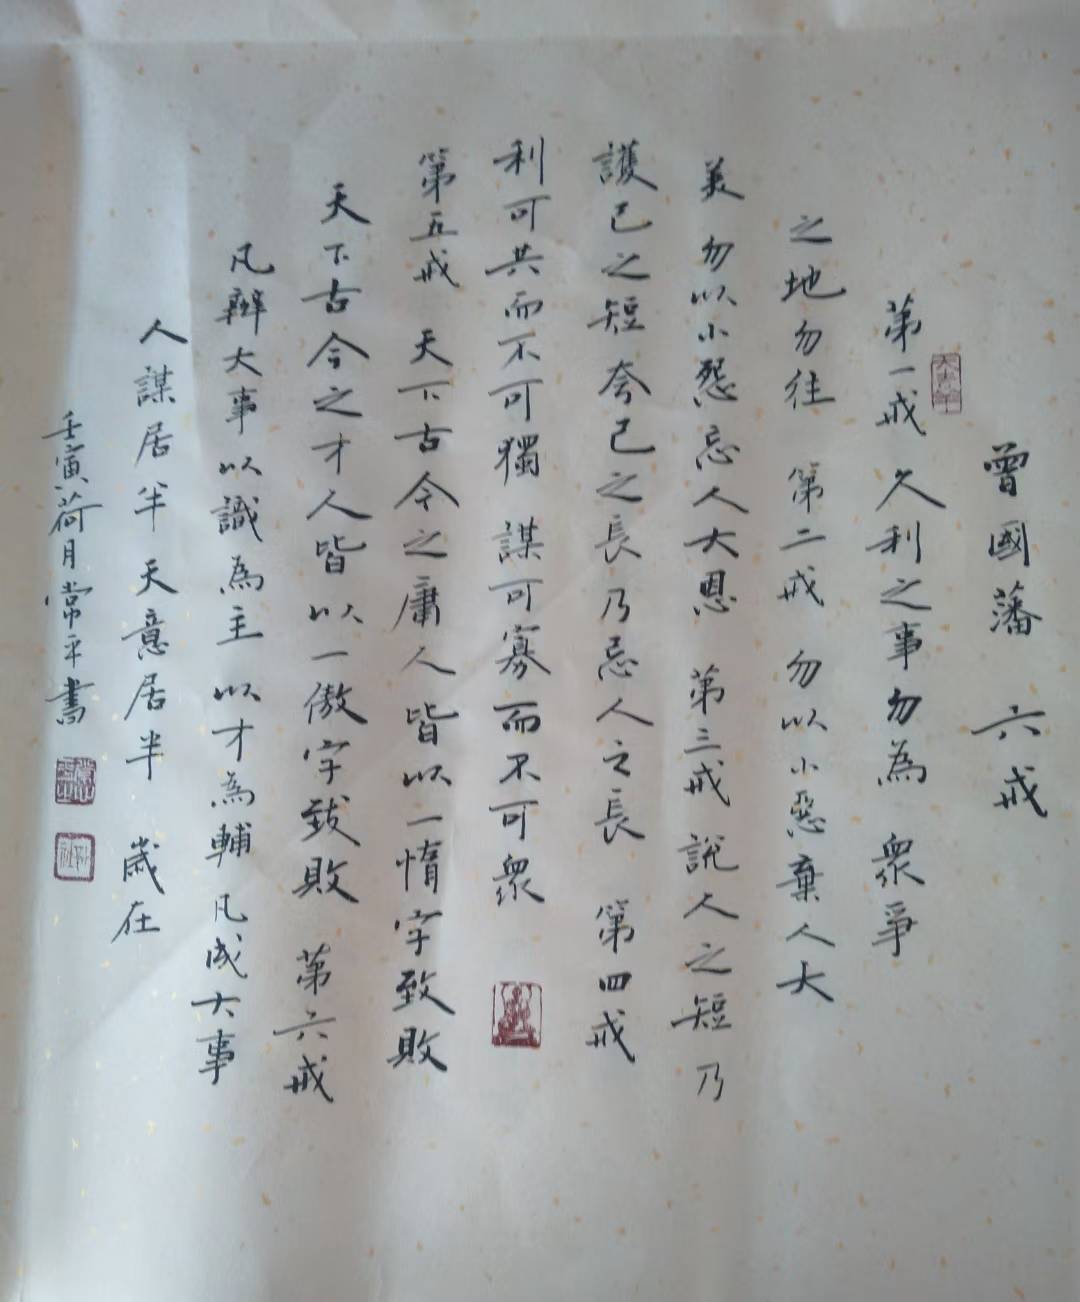 曾國藩 六戒
第一戒 久利之事勿為 衆爭
之地勿往 第二戒 勿以小惡棄人大
美 勿以小怨忘人大恩 第三戒 說人之短 乃
護己之短 夸己之長 乃忌人之長 第四戒
利可共而不可獨 謀可寡而不可衆
第五戒 天下古今之庸人皆以一惰字致敗
天下古今之才人皆以一傲字致敗 第六戒
凡辦大事以識為主 以才為輔 凡成大事
人謀居半 天意居半 歲在
壬寅荷月常平書